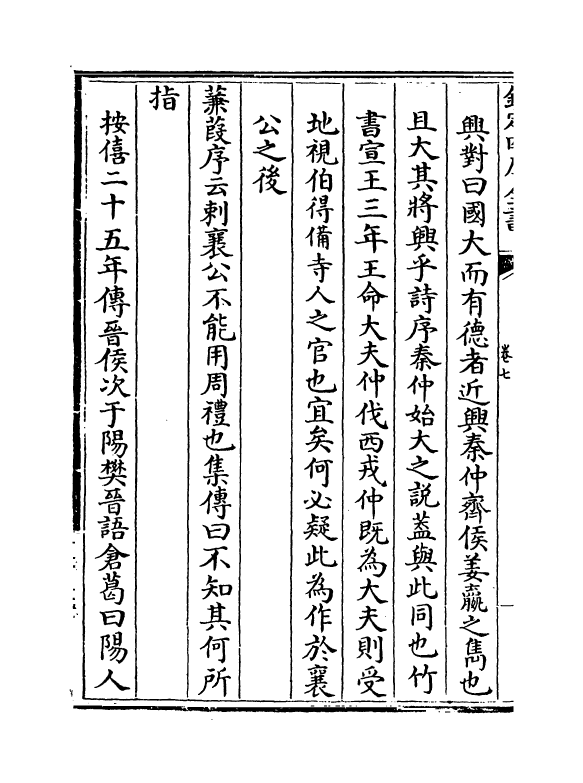 興對曰國大而有德者近興秦仲齊侯姜嬴之雋也
且大其將興乎詩序秦仲始大之説葢與此同也竹
書宣王三年王命大夫仲伐西戎仲既為大夫則受
地視伯得備寺人之官也宜矣何必疑此為作於襄
公之後
蒹葭序云刺襄公不能用周禮也集傳曰不知其何所
指
按僖二十五年傳晉侯次于陽樊晉語倉葛曰陽人
卷七